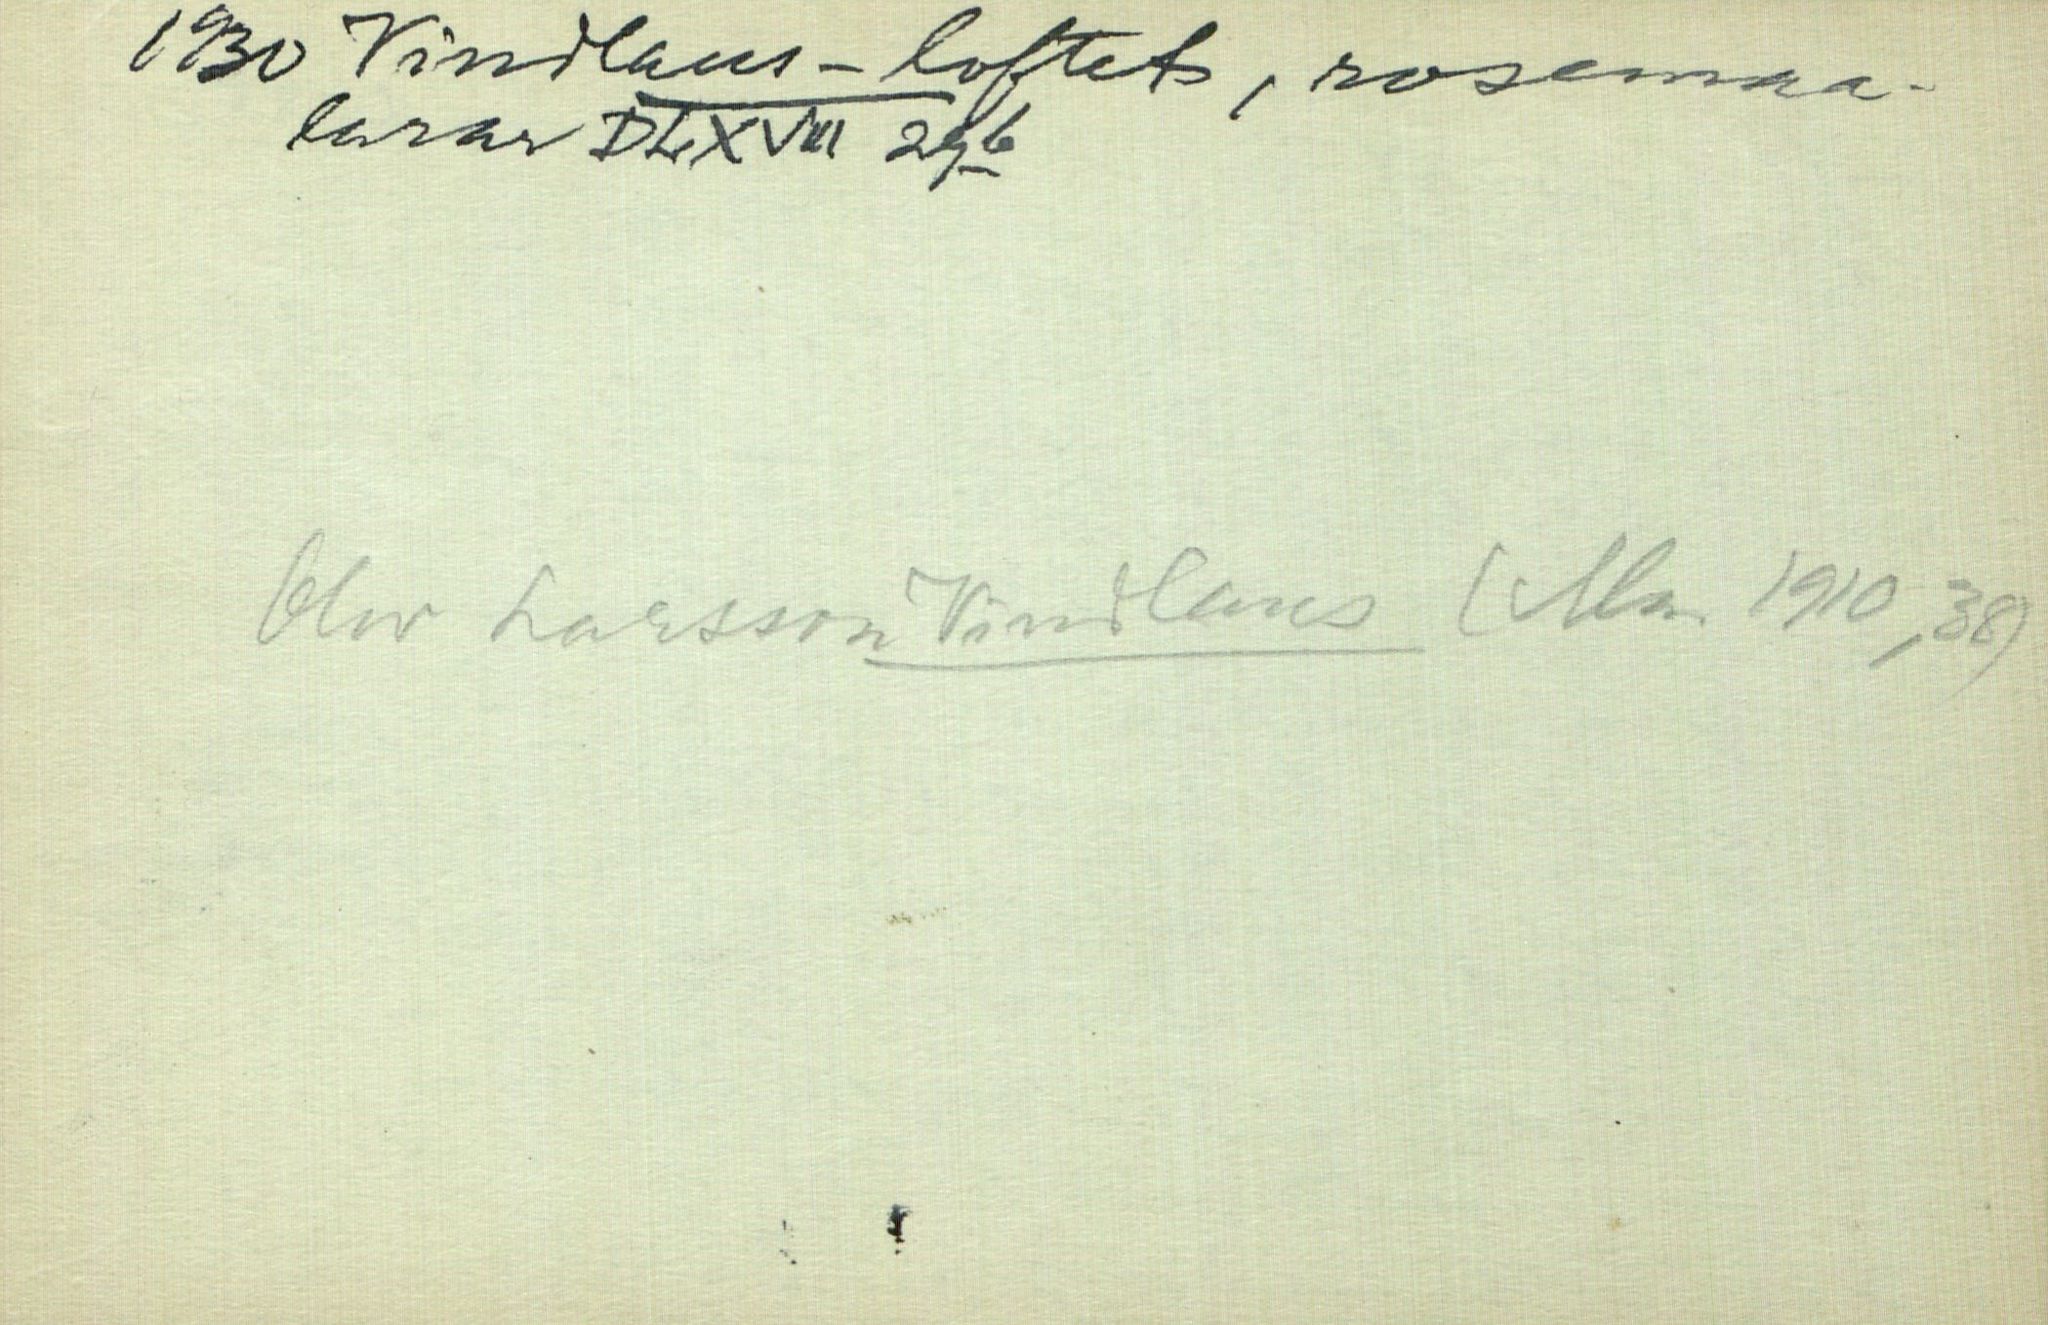 1930 Vindlaus-loftet, rosemaa-
larar DLXVIII 29b
Olav Larsson Vindlaus (Mm 1910, 38)